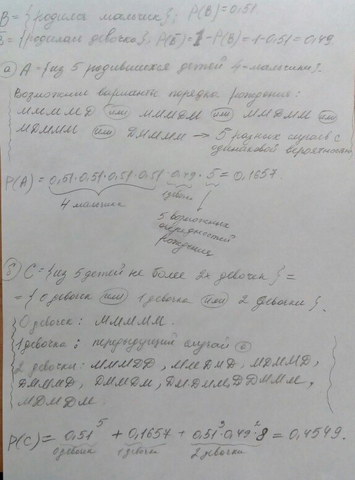 B = {родился мальчик}; P(B)=0,51.
B̅ = {родилась девочка}; P(B̅)=1-P(B)=1-0,51=0,49.
а) A={из 5 родившихся детей 4-мальчика}.
Возможные варианты порядка рождения:
ММММД или МММДМ или ММДММ или
МДМММ или ДММММ → 5 разных случаев с
одинаковой вероятностью
P(A)=0,51·0,51·0,51·0,51·0,49·5=0,1657.
4 мальчика 1 девочка
5 возможных
очередностей
рождения
б) C={из 5 детей не более 2х девочек}=
={0 девочек или 1 девочка или 2 девочки}.
0 девочек: МММММ.
1 девочка: предыдущий случай а
2 девочки: МММДД, ММДМД, МДММД,
ДМММД, ДММДМ, ДМДММ, ДДМММ,
МДМДМ.
P(C)=0,51⁵+0,1657+0,51³·0,49²·8=0,4549.
0 девочек 1 девочка 2 девочки